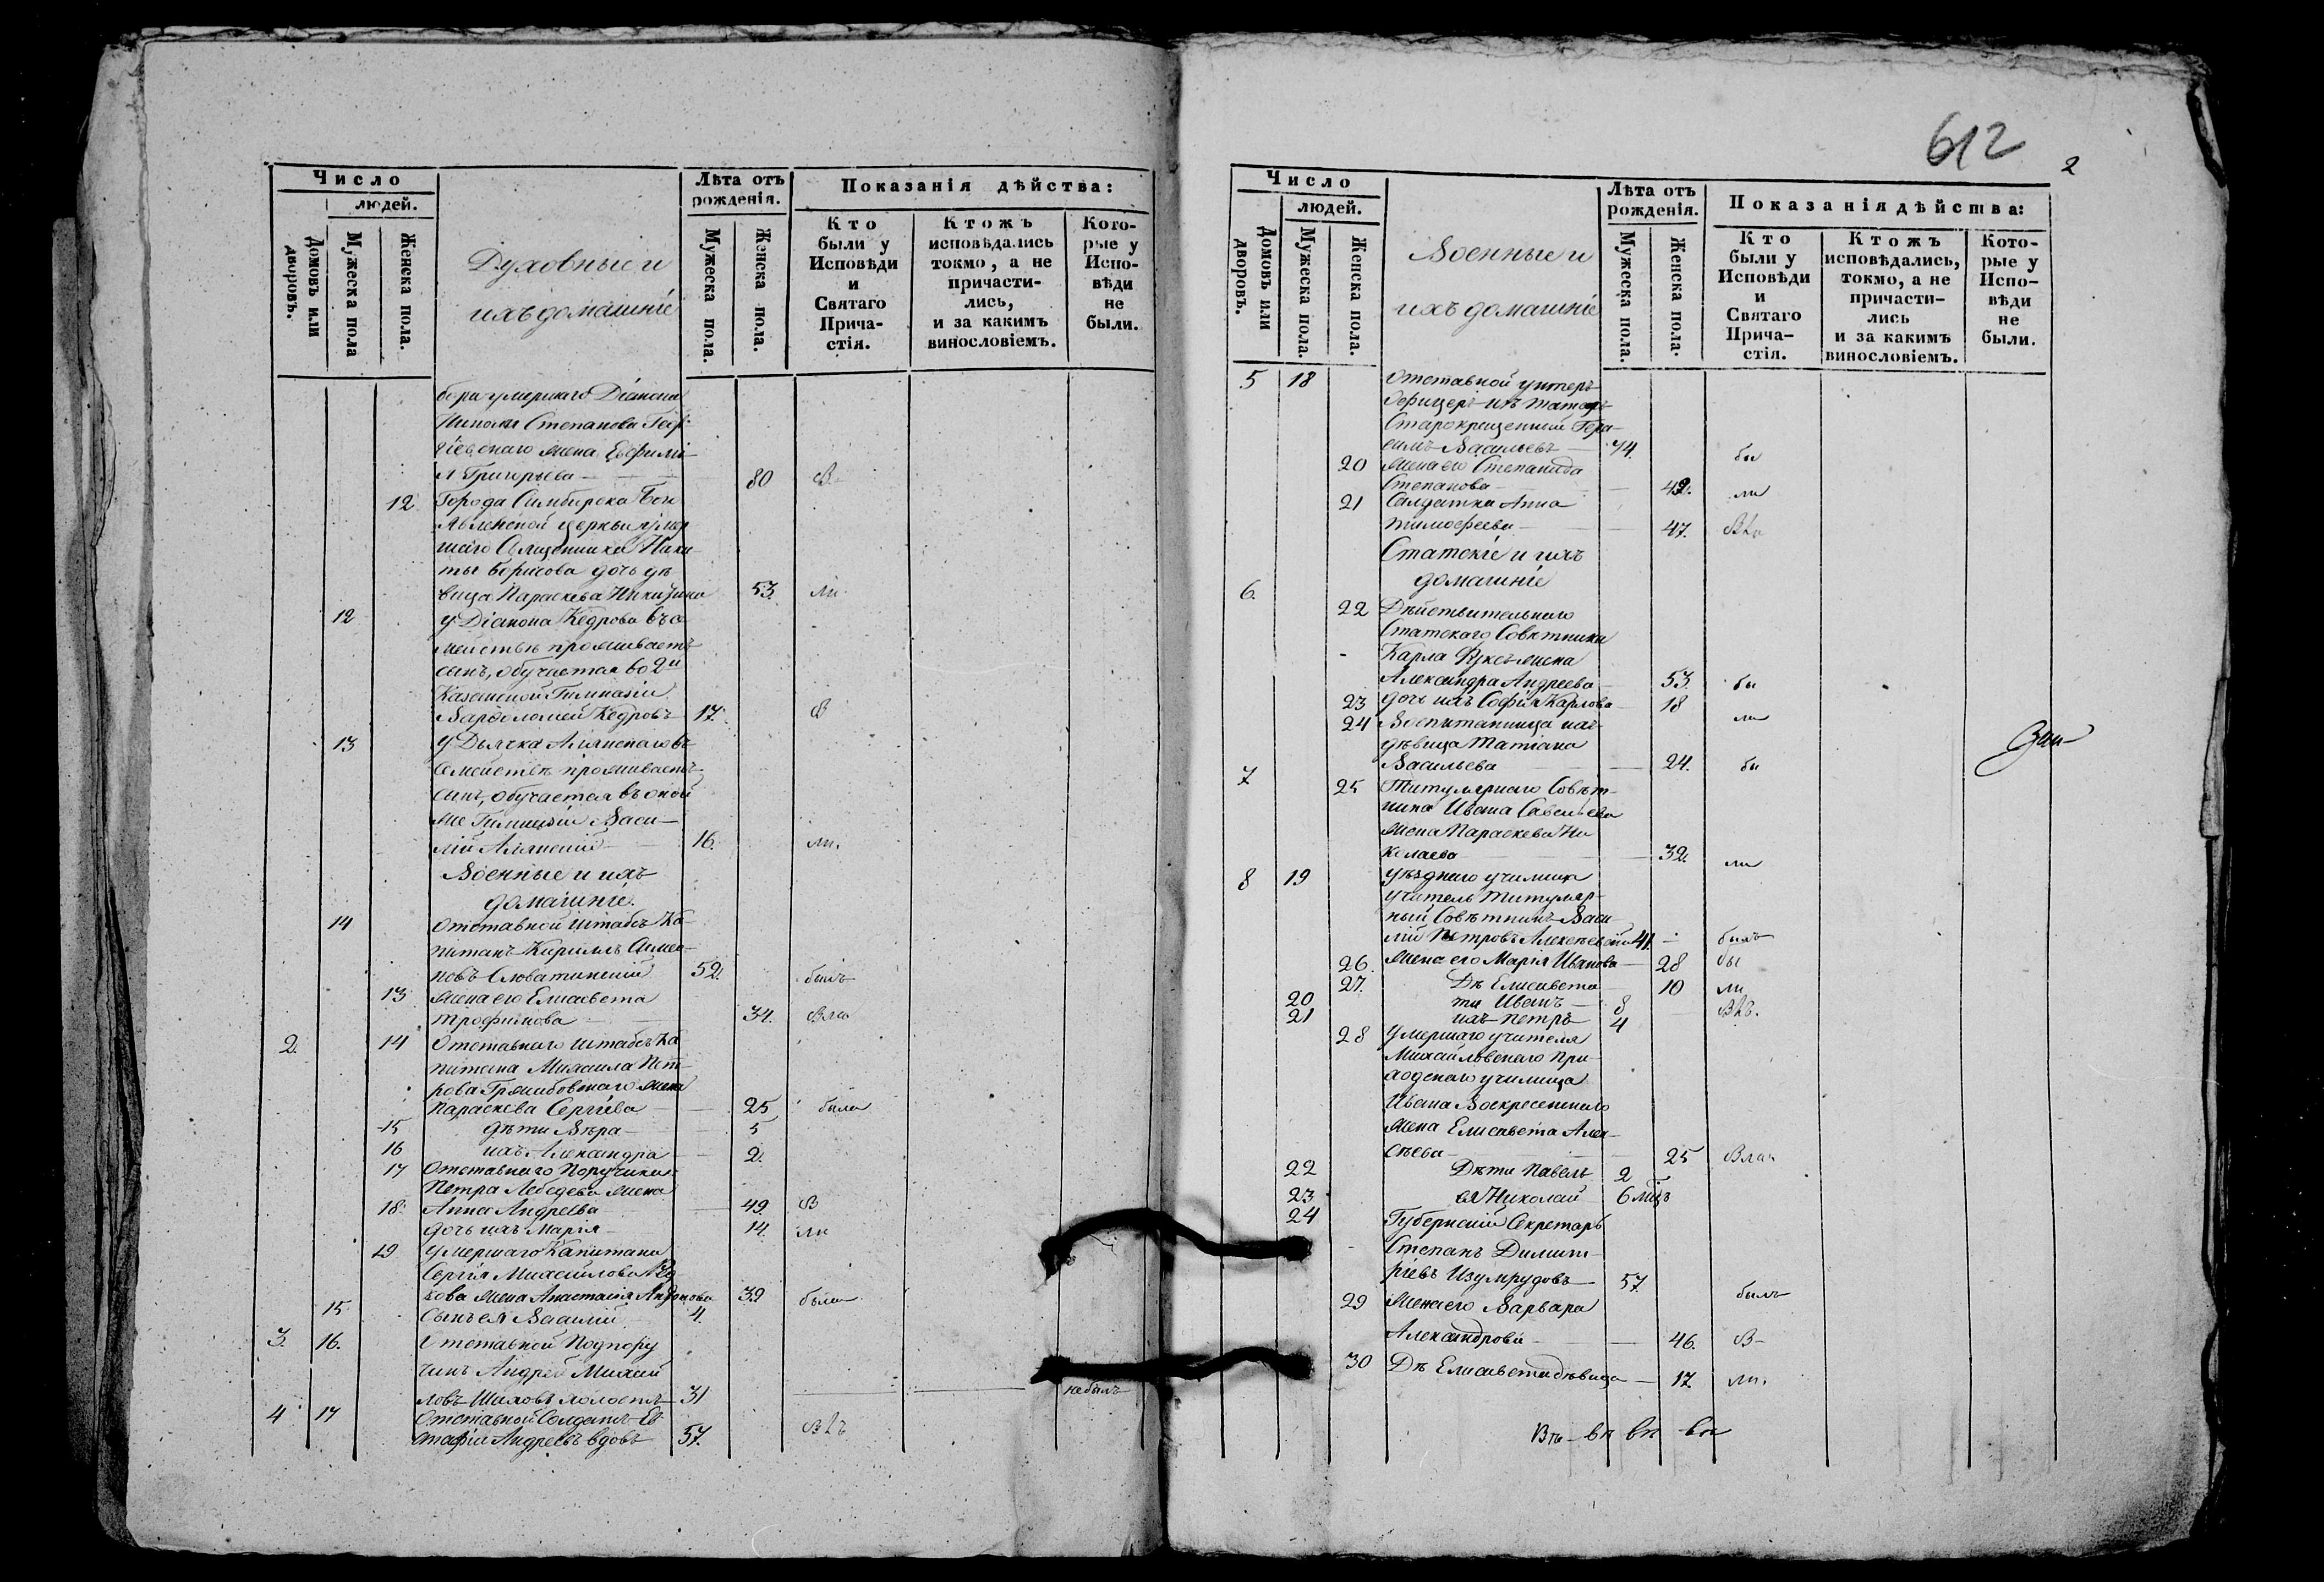 Число
людей.
Домовъ или дворовъ.
Мужеска пола
Женска пола.
Духовные и
ихъ домашніе
Лѣта отъ рожденія.
Мужеска пола.
Женска пола.
Показанія дѣйства:
Кто были у Исповѣди и Святаго Причастія.
Ктожъ исповѣдались токмо, а не причастились, и за какимъ винословіемъ.
Которые у Исповѣди не были.
бора умершаго Діакона
Степанова
жена Евфимі-
я Григорьева 80 В
12 Города Симбирска Бого
явленской церкви умер
шаго Священника Ники
ты Борисова дочь дѣ
вица Параскева Никитина 53. ли
12 у Діакона Кедрова въ се
мействѣ проживаетъ
сынъ, обучается во 2й
Казанской Гимназіи
Варѳоломей Кедровъ 17. В
13 у Дьячка въ
семействѣ проживаетъ
сынъ, обучается въ оной
же Гимназіи Васи-
лій 16. ли.
Военные и ихъ
домашніе.
14 Отставной Штабсъ Ка-
питанъ Кириллъ Симео-
новъ Словатинскій 52. былъ
13 жена его Елисавета
Трофимова 34. Вла
2. 14 Отставнаго Штабсъ Ка
питана Михаила Пет-
рова жена
Параскева Сергіева 25 была
15 дѣти Вѣра 5
16 ихъ Александра 2.
17 Отставнаго Поручика
Петра Лебедева жена
18 Анна Андреева 49. В
дочь ихъ Марія 14. ли
19 умершаго Капитана
Сергія Михайлова
кова жена Анастасія 39 была
15 Сынъ ея Василій 4.
3. 16. Отставной Подпору
чикъ Андрей Михай
ловъ холостъ 31 не былъ
4 17 Отставной Солдатъ Ев
стафій Андреевъ вдовъ 57. Въ
612
2
Число
людей.
Домовъ или дворовъ.
Мужеска пола.
Женска пола.
Военные и
ихъ домашніе
Лѣта отъ рожденія.
Мужеска пола.
Женска пола.
Показанія дѣйства:
Кто были у Исповѣди и Святаго Причастія.
Ктожъ исповѣдались, токмо, а не причастились и за какимъ винословіемъ.
Которые у Исповѣди не были.
5 18 Отставной унтеръ
офицеръ изъ татаръ
Старокрещенный Гера-
симъ Васильевъ 74. бы
20 жена его Степанида
Степанова 42. ли
21 Солдатка Анна
Тимофеева 47.
Статскіе и ихъ
домашніе
6. 22 Дѣйствительнаго
Статскаго Совѣтника
Карла Фуксъ жена
Александра Андреева 53. бы
23 дочь ихъ Софія Карлова 18
24 Воспитанница ихъ ли
дѣвица Татіана
Васильева 24. бы
7 25 Титулярнаго Совѣт-
ника Ивана Савельева
жена Параскева Ни
колаева 32. ли
8 19 уѣзднаго училища
учитель Титуляр-
ный Совѣтникъ Васи
лій Петровъ 41. былъ
26. жена его Марія Иванова 28 бы
27. Дѣ Елисавета 10 ли
20 ти Иванъ 8
21 ихъ Петръ 4
28 Умершаго учителя
Михайловскаго при-
ходскаго училища
Ивана Воскресенскаго
жена Елисавета Алек-
сѣева 25 Вла
22 Дѣти Павелъ 2
23 ея Николай 6 мцъ
24 Губернскій Секретарь
Степанъ Димит-
ріевъ Изумрудовъ 57. былъ
29 жена его Варвара
Александрова 46. В
30 Дѣ Елисавета дѣвица 17 ли.